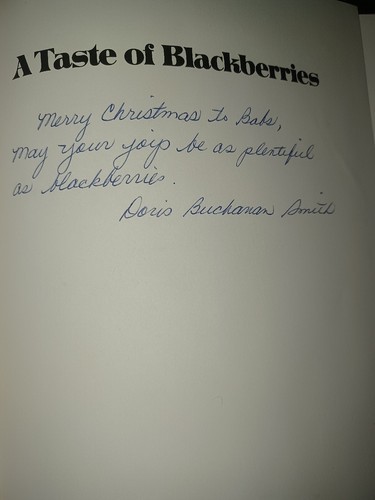 A Taste of Blackberries
Merry Christmas to Babs,
may your joys be as plentiful
as blackberries.
Doris Buchanan Smith